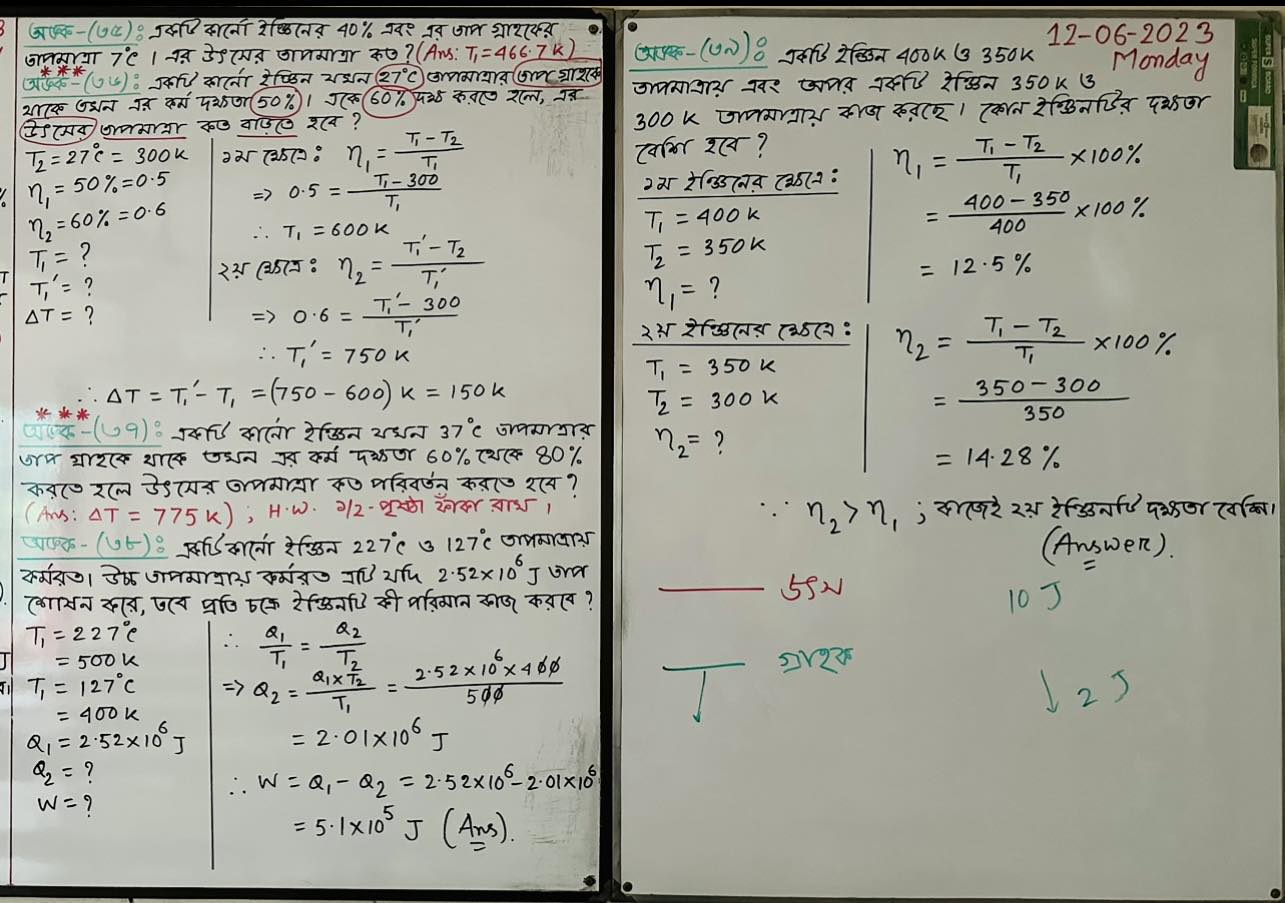 অংক-(৩৫): একটি কার্নো ইঞ্জিনের 40% এবং এর তাপ গ্রাহকের
তাপমাত্রা 7°C। এর উৎসের তাপমাত্রা কত? (Ans: T₁=466.7K)
***
অংক-(৩৬): একটি কার্নো ইঞ্জিন যখন 27°C তাপমাত্রার তাপ গ্রাহকে
থাকে তখন এর কর্ম দক্ষতা 50%। একে 60% দক্ষ করতে হলে, এর
উৎসের তাপমাত্রা কত বাড়াতে হবে?
T₂ = 27°C = 300K
η₁ = 50% = 0.5
η₂ = 60% = 0.6
T₁ = ?
T₁′ = ?
ΔT = ?
১ম ক্ষেত্রে: η₁ = (T₁ - T₂)/T₁
=> 0.5 = (T₁ - 300)/T₁
∴ T₁ = 600K
২য় ক্ষেত্রে: η₂ = (T₁′ - T₂)/T₁′
=> 0.6 = (T₁′ - 300)/T₁′
∴ T₁′ = 750K
∴ ΔT = T₁′ - T₁ = (750 - 600) K = 150K
***
অংক-(৩৭): একটি কার্নো ইঞ্জিন যখন 37°C তাপমাত্রার
তাপ গ্রাহকে থাকে তখন এর কর্ম দক্ষতা 60% থেকে 80%
করতে হলে উৎসের তাপমাত্রা কত পরিবর্তন করতে হবে?
(Ans: ΔT = 775K); H.W. ১/২-পৃষ্ঠা ফাঁকা রাখ।
অংক-(৩৮): একটি কার্নো ইঞ্জিন 227°C ও 127°C তাপমাত্রায়
কর্মরত। উচ্চ তাপমাত্রায় কর্মরত এটি যদি 2.52×10⁶ J তাপ
শোষন করে, তবে প্রতি চক্রে ইঞ্জিনটি কী পরিমান কাজ করবে?
T₁ = 227°C
= 500K
T₁ = 127°C
= 400K
Q₁ = 2.52×10⁶ J
Q₂ = ?
W = ?
∴ Q₁/T₁ = Q₂/T₂
=> Q₂ = (Q₁×T₂)/T₁ = (2.52×10⁶×400)/500
= 2.01×10⁶ J
∴ W = Q₁ - Q₂ = 2.52×10⁶ - 2.01×10⁶
= 5.1×10⁵ J (Ans).
12-06-2023
Monday
অংক-(৩৯): একটি ইঞ্জিন 400K ও 350K
তাপমাত্রায় এবং অপর একটি ইঞ্জিন 350K ও
300K তাপমাত্রায় কাজ করছে। কোন ইঞ্জিনটির দক্ষতা
বেশি হবে?
১ম ইঞ্জিনের ক্ষেত্রে:
T₁ = 400K
T₂ = 350K
η₁ = ?
η₁ = (T₁ - T₂)/T₁ × 100%
= (400 - 350)/400 × 100%
= 12.5%
২য় ইঞ্জিনের ক্ষেত্রে:
T₁ = 350K
T₂ = 300K
η₂ = ?
η₂ = (T₁ - T₂)/T₁ × 100%
= (350 - 300)/350
= 14.28%
∵ η₂ > η₁; কাজেই ২য় ইঞ্জিনটি দক্ষতা বেশি।
(Answer).
উৎস
10 J
গ্রাহক
2 J